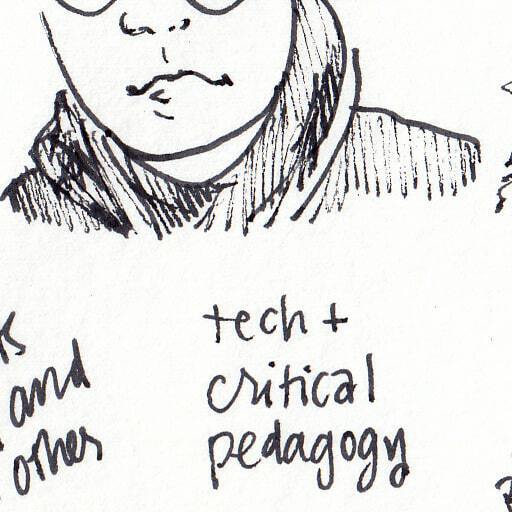 and
other
tech +
critical
pedagogy